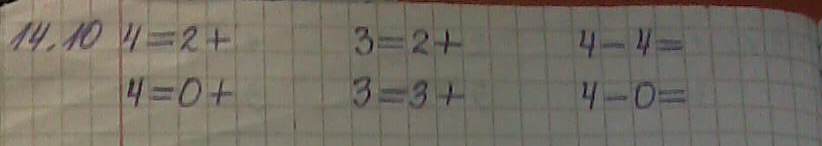 14.10 4=2+ 3=2+ 4-4=
4=0+ 3=3+ 4-0=